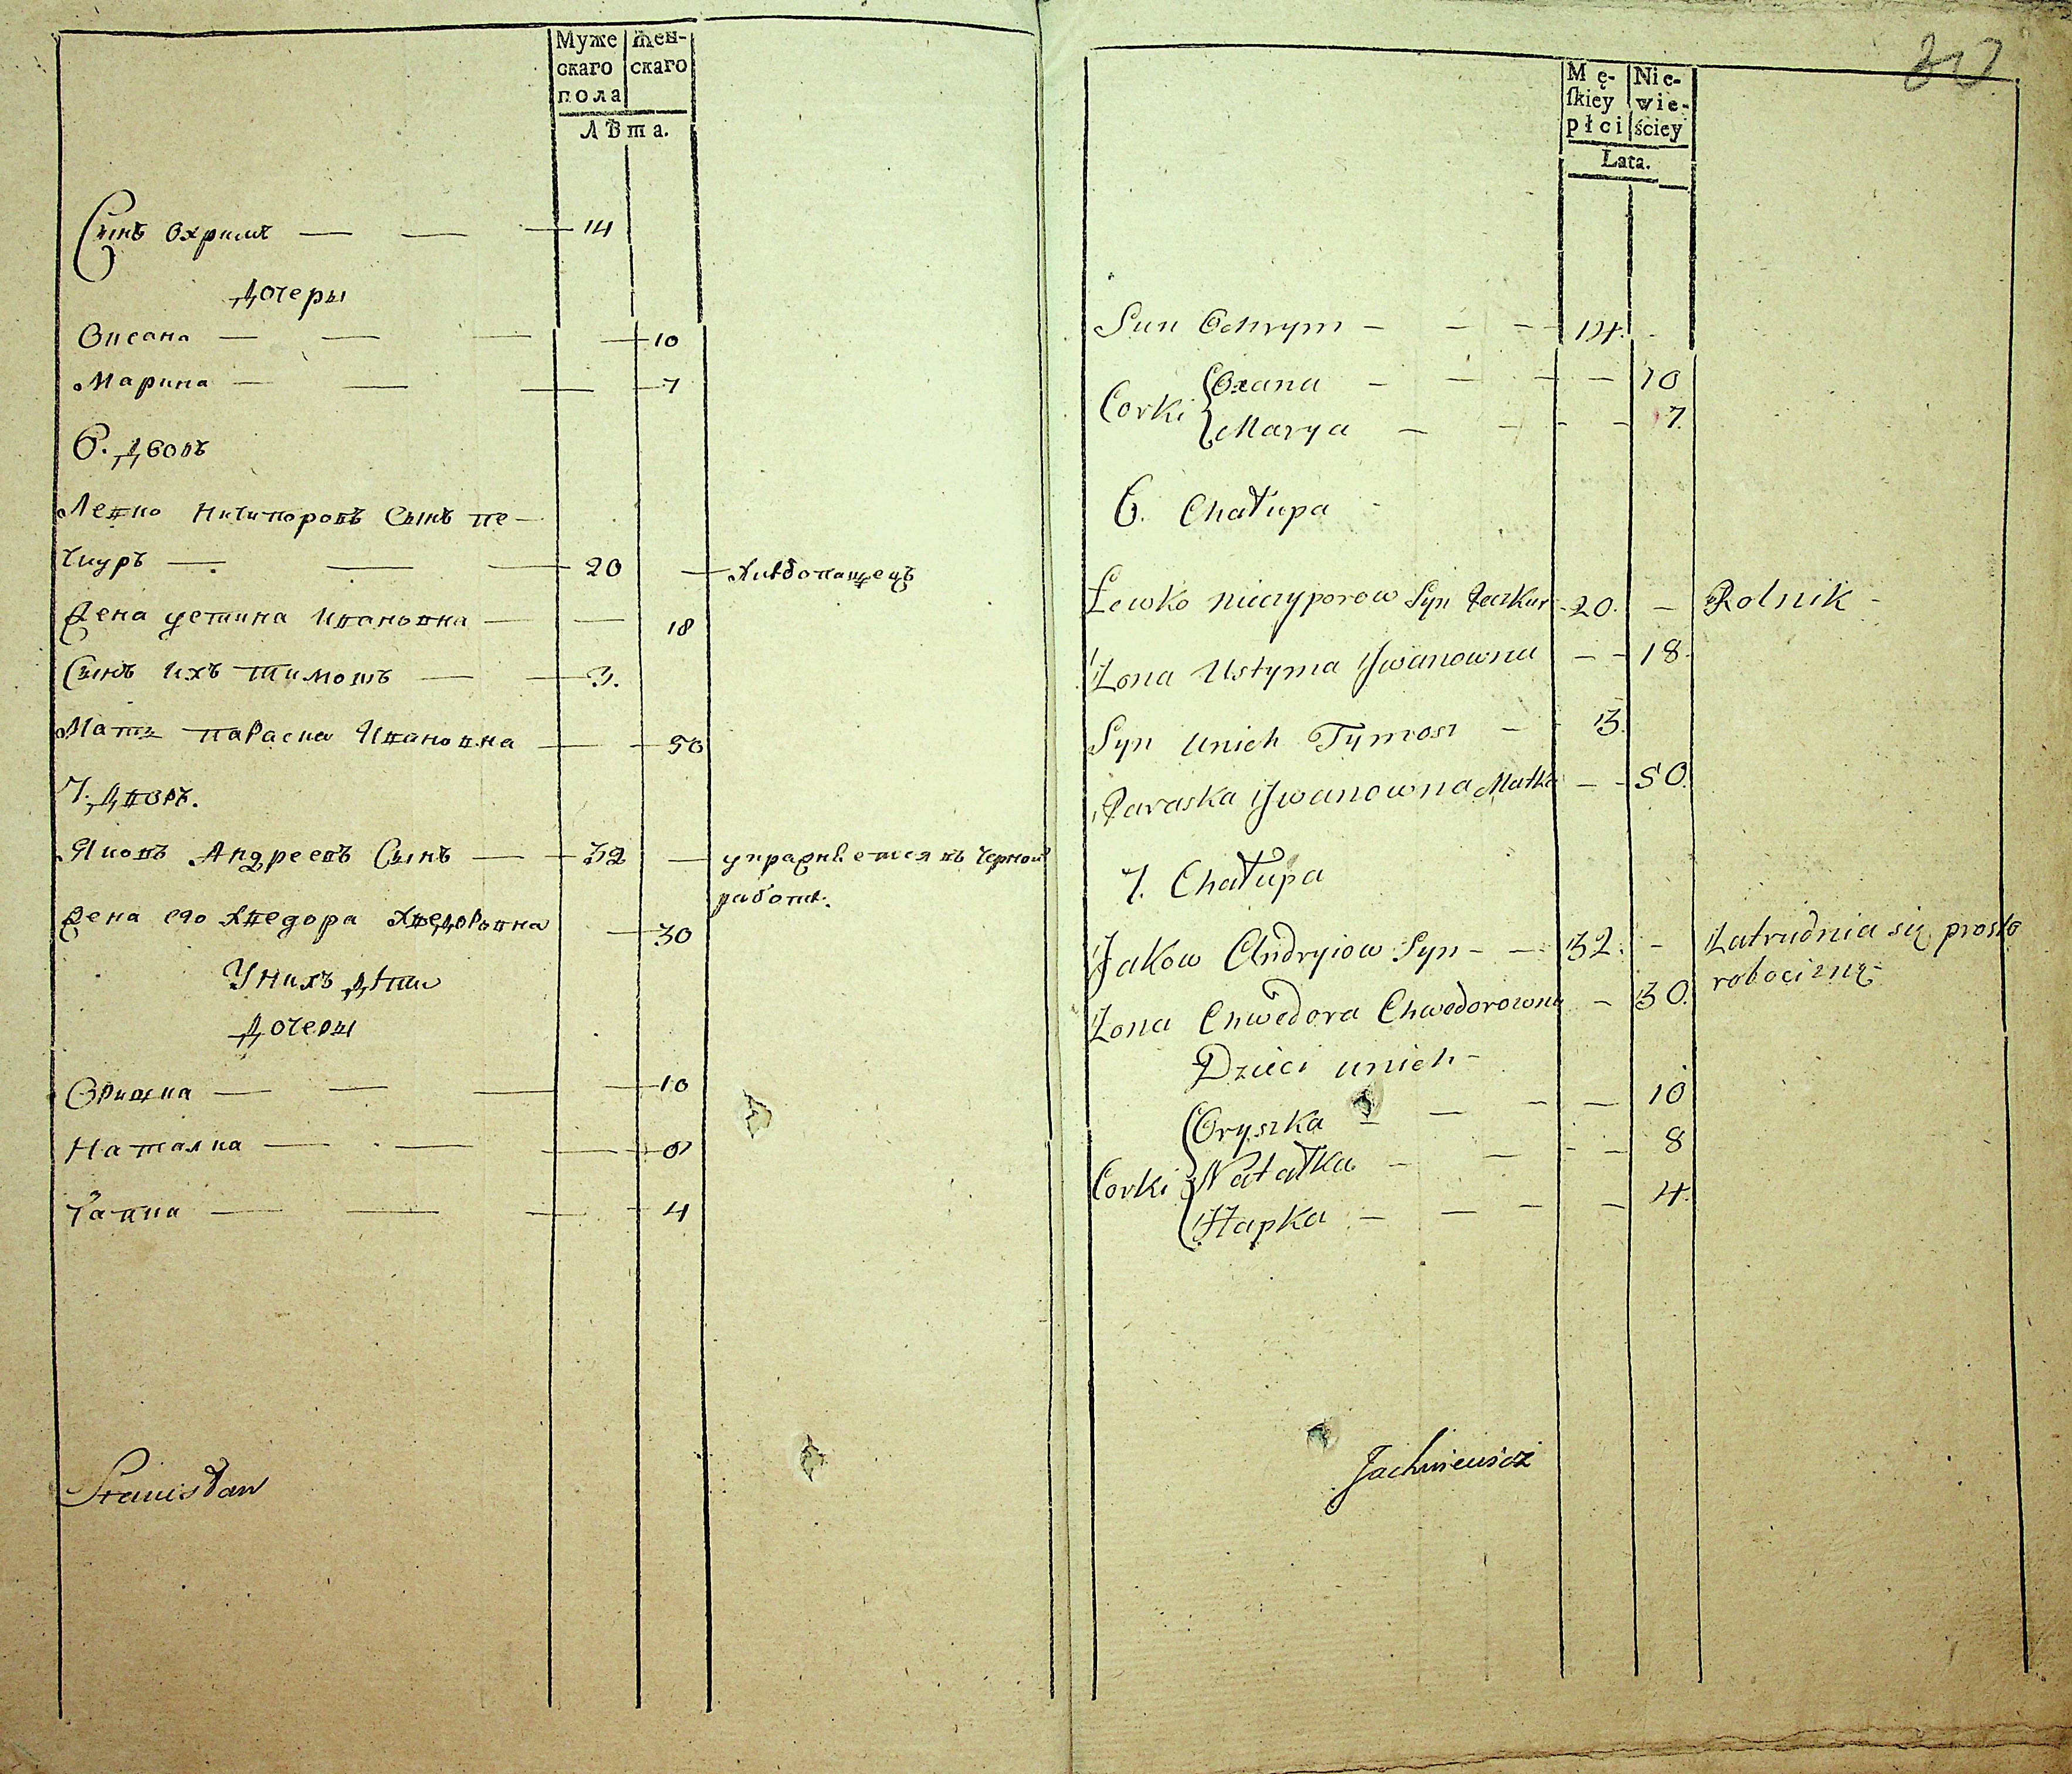 Муже
скаго
пола
Жен-
скаго
Лѣта.
Сынъ Охримъ — — — 14
Дочеры
Оксана — — — — 10
Марина — — — — 7
6. Дворъ
Левко Ничипоровъ Сынъ пе-
чкуръ — — — 20 — Хлѣбопашецъ
Жена Устина Ивановна — — 18
Сынъ ихъ Тимошъ — — 3.
Мать Параска Ивановна — — 50
7. Дворъ.
Яковъ Андреевъ Сынъ — — 32 — упражняется въ черной
работѣ.
Жена его Хведора Хведоровна — 30
У нихъ дѣти
Дочеры
Оришка — — — — 10
Наталка — — — — 8
Гапка — — — — 4
Stanisław
Mę-
ſkiey
płci
Nie-
wie-
ściey
Lata.
Sun Ochrym — — — 14.
Corki Oxana — — — — 10
Marya — — — — 7.
6. Chałupa
Lewko Nieczyporow Syn Peczkur 20. — Rolnik —
Żona Ustyma Jwanowna — — 18.
Syn unich Tymosz — 3.
Paraska Jwanowna Matka — — 50.
7. Chałupa
Jakow Andryiow Syn — — 32. — Zatrudnia się prosto
robocizną
Żona Chwedora Chwedorowna — 30.
Dzieci unich —
Oryszka — — — — 10
Corki Natałka — — — — 8
Hapka — — — — 4.
Jachniewicz